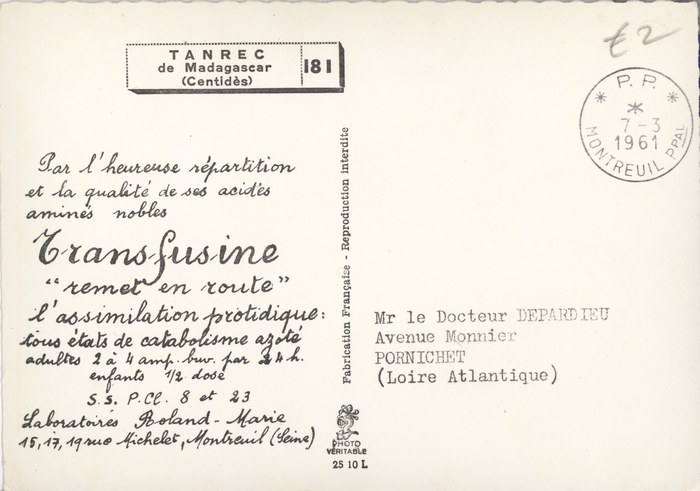 TANREC
de Madagascar
(Centidès)
181
£2
P. P.
7-3
1961
MONTREUIL PPAL
Par l'heureuse répartition
et la qualité de ses acides
aminés nobles
Transfusine
"remet en route"
l'assimilation protidique:
tous états de catabolisme azoté
adultes 2 à 4 amp. buv. par 24 h.
enfants 1/2 dose
S.s. P.Cl. 8 et 23
Laboratoires Roland-Marie
15,17,19 rue Michelet, Montreuil (Seine)
Fabrication Française - Reproduction interdite
PHOTO
VÉRITABLE
25 10 L
Mr le Docteur DEPARDIEU
Avenue Monnier
PORNICHET
(Loire Atlantique)